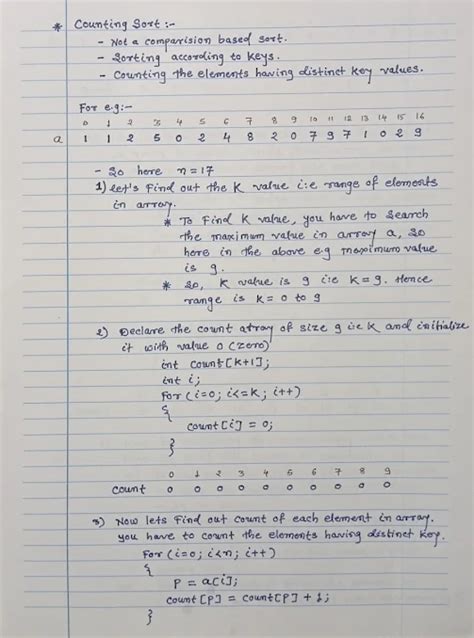 * Counting Sort :-
- Not a comparision based sort.
- Sorting according to keys.
- Counting the elements having distinct key values.
For e.g:-
0 1 2 3 4 5 6 7 8 9 10 11 12 13 14 15 16
a 1 1 2 5 0 2 4 8 2 0 7 9 7 1 0 2 9
- So here n=17
1) let's Find out the K value i:e range of elements
in array.
* To Find K value, you have to search
the maximum value in array a, So
here in the above e.g maximum value
is 9.
* So, K value is 9 i:e k=9. Hence
range is k = 0 to 9
2) Declare the count array of size 9 i:e K and initialize
it with value 0 (zero)
int count[k+1];
int i;
For (i=0; i<=k; i++)
{
count[i] = 0;
}
0 1 2 3 4 5 6 7 8 9
count 0 0 0 0 0 0 0 0 0 0
3) Now lets Find out count of each element in array.
you have to count the elements having distinct key.
For (i=0; i<n; i++)
{
P = a[i];
count[P] = count[P] + 1;
}